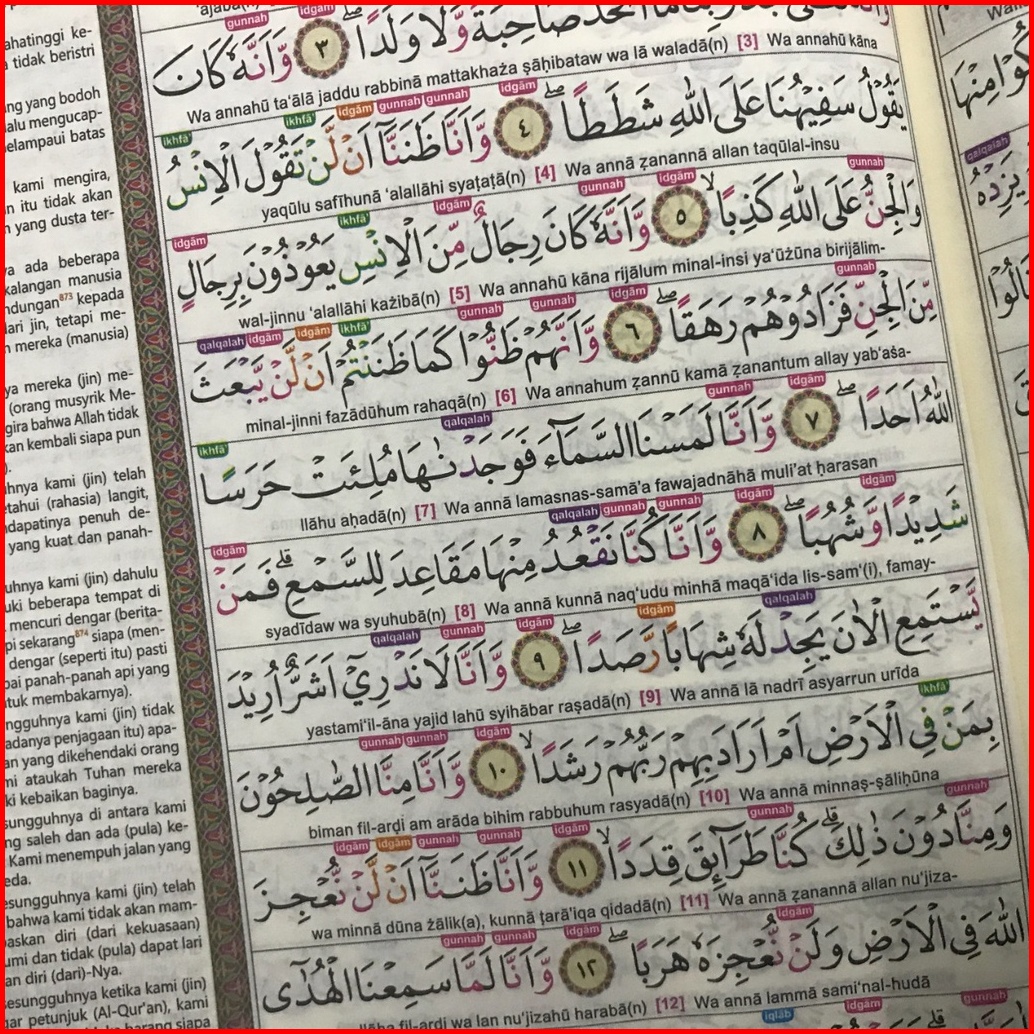 ahatinggi ke-
tidak beristri
ng yang bodoh
alu mengucap-
elampaui batas
kami mengira,
n itu tidak akan
yang dusta ter-
ya ada beberapa
kalangan manusia
ndungan⁸⁷³ kepada
ari jin, tetapi me-
mereka (manusia)
ya mereka (jin) me-
(orang musyrik Me-
gira bahwa Allah tidak
kan kembali siapa pun
).
uhnya kami (jin) telah
etahui (rahasia) langit,
dapatinya penuh de-
yang kuat dan panah-
uhnya kami (jin) dahulu
uki beberapa tempat di
mencuri dengar (berita-
pi sekarang⁸⁷⁴ siapa (men-
dengar (seperti itu) pasti
pai panah-panah api yang
tuk membakarnya).
ngguhnya kami (jin) tidak
adanya penjagaan itu) apa-
an yang dikehendaki orang
mi ataukah Tuhan mereka
ki kebaikan baginya.
sungguhnya di antara kami
ng saleh dan ada (pula) ke-
Kami menempuh jalan yang
eda.
esungguhnya kami (jin) telah
bahwa kami tidak akan mam-
askan diri (dari kekuasaan)
umi dan tidak (pula) dapat lari
an diri (dari)-Nya.
esungguhnya ketika kami (jin)
gar petunjuk (Al-Qur'an), kami
gunnah idgām
صَاحِبَةً وَّلَا وَلَدًاۖ ٣ وَّاَنَّهٗ كَانَ
Wa annahū ta'ālā jaddu rabbinā mattakhaża ṣāḥibataw wa lā waladā(n) [3] Wa annahū kāna
ikhfā' ikhfā' idgām gunnah gunnah idgām
يَقُوْلُ سَفِيْهُنَا عَلَى اللّٰهِ شَطَطًاۖ ٤ وَّاَنَّا ظَنَنَّآ اَنْ لَّنْ تَقُوْلَ الْاِنْسُ
yaqūlu safīhunā 'alallāhi syaṭaṭā(n) [4] Wa annā ẓanannā allan taqūlal-insu
idgām ikhfā' idgām gunnah idgām gunnah
وَالْجِنُّ عَلَى اللّٰهِ كَذِبًاۙ ٥ وَّاَنَّهٗ كَانَ رِجَالٌ مِّنَ الْاِنْسِ يَعُوْذُوْنَ بِرِجَالٍ
wal-jinnu 'alallāhi każibā(n) [5] Wa annahū kāna rijālum minal-insi ya'ūżūna birijālim-
qalqalah idgām idgām ikhfā' gunnah gunnah idgām gunnah
مِّنَ الْجِنِّ فَزَادُوْهُمْ رَهَقًاۖ ٦ وَّاَنَّهُمْ ظَنُّوْا كَمَا ظَنَنْتُمْ اَنْ لَّنْ يَّبْعَثَ
minal-jinni fazādūhum rahaqā(n) [6] Wa annahum ẓannū kamā ẓanantum allay yab'aṡa-
ikhfā' qalqalah gunnah idgām
اللّٰهُ اَحَدًاۖ ٧ وَّاَنَّا لَمَسْنَا السَّمَاۤءَ فَوَجَدْنٰهَا مُلِئَتْ حَرَسًا
llāhu aḥadā(n) [7] Wa annā lamasnas-samā'a fawajadnāhā muli'at ḥarasan
idgām qalqalah gunnah gunnah idgām idgām
شَدِيْدًا وَّشُهُبًاۖ ٨ وَّاَنَّا كُنَّا نَقْعُدُ مِنْهَا مَقَاعِدَ لِلسَّمْعِۗ فَمَنْ
syadīdaw wa syuhubā(n) [8] Wa annā kunnā naq'udu minhā maqā'ida lis-sam'(i), famay-
qalqalah gunnah idgām idgām qalqalah
يَّسْتَمِعِ الْاٰنَ يَجِدْ لَهٗ شِهَابًا رَّصَدًاۖ ٩ وَّاَنَّا لَا نَدْرِيْٓ اَشَرٌّ اُرِيْدَ
yastami'il-āna yajid lahū syihābar raṣadā(n) [9] Wa annā lā nadrī asyarrun urīda
gunnah gunnah idgām ikhfā'
بِمَنْ فِى الْاَرْضِ اَمْ اَرَادَ بِهِمْ رَبُّهُمْ رَشَدًاۙ ١٠ وَّاَنَّا مِنَّا الصّٰلِحُوْنَ
biman fil-arḍi am arāda bihim rabbuhum rasyadā(n) [10] Wa annā minnaṣ-ṣāliḥūna
idgām idgām gunnah gunnah idgām gunnah
وَمِنَّا دُوْنَ ذٰلِكَۗ كُنَّا طَرَاۤىِٕقَ قِدَدًاۙ ١١ وَّاَنَّا ظَنَنَّآ اَنْ لَّنْ نُّعْجِزَ
wa minnā dūna żālik(a), kunnā ṭarā'iqa qidadā(n) [11] Wa annā ẓanannā allan nu'jiza-
gunnah gunnah idgām idgām
اللّٰهَ فِى الْاَرْضِ وَلَنْ نُّعْجِزَهٗ هَرَبًاۖ ١٢ وَّاَنَّا لَمَّا سَمِعْنَا الْهُدٰٓى
llāha fil-arḍi wa lan nu'jizahū harabā(n) [12] Wa annā lammā sami'nal-hudā
iqlāb idgām gunnah
qalqalah